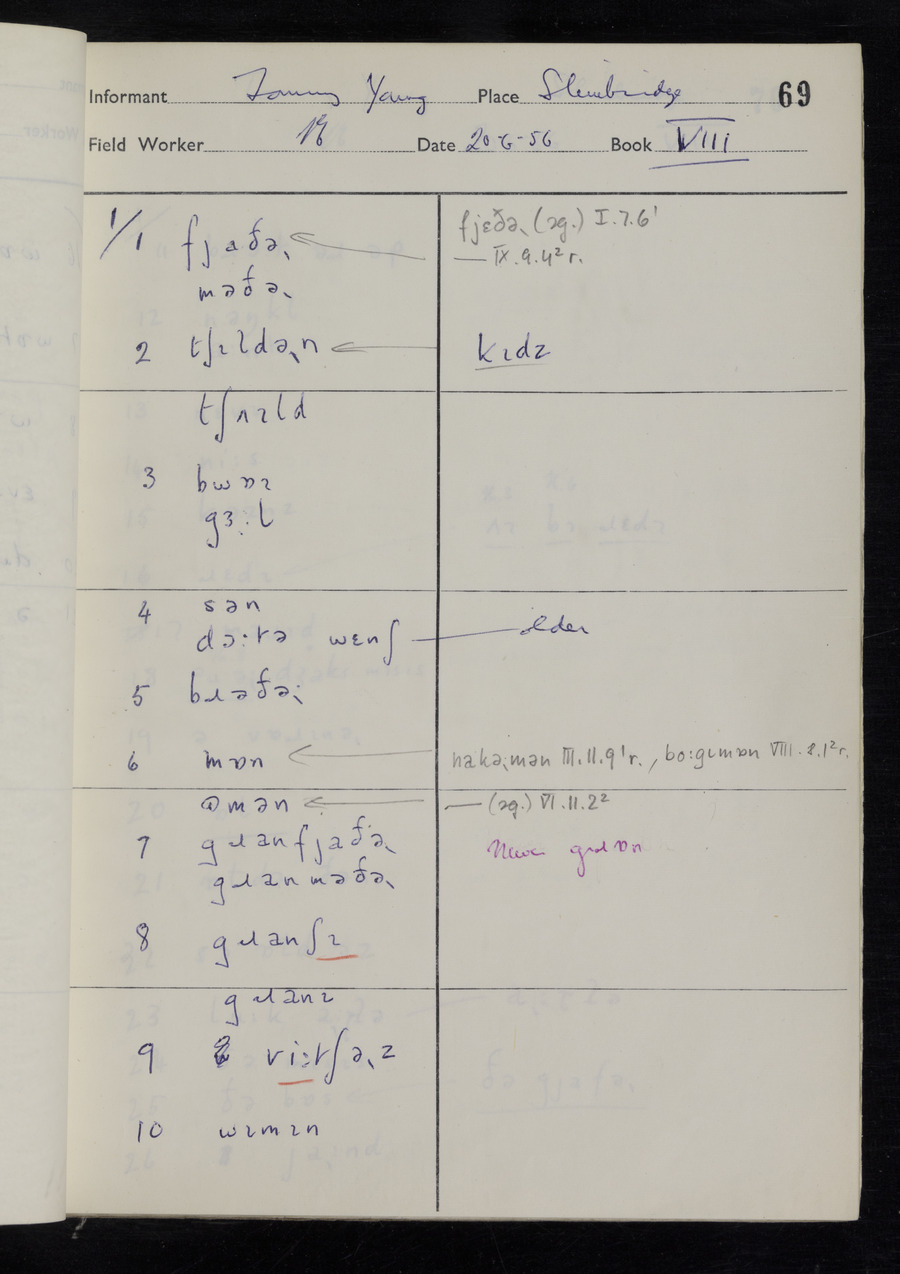 Informant Tommy Young Place Slimbridge 69
Field Worker Date 20-6-56 Book VIII
1/1 fjaðəɹ fjɛðəɹ (əg.) I.7.6¹
— IX.9.4² r.
məðəɹ
2 tʃɪldəɹn kɪdz
tʃʌɪld
3 bwɒɪ
gɜ:l
4 sən
dɔ:tə wɛnʃ — older
5 bɹəðəɹ
6 mɒn nakəɹmən III.11.9¹ r., bo:gɪmɒn VIII.8.1² r.
əmən — (əg.) VI.11.2²
7 gɹanfjaðəɹ
gɹanməðəɹ
8 gɹanʃɪ
gɹanɪ
9 vi:tʃəɹz
10 wɪmɪn